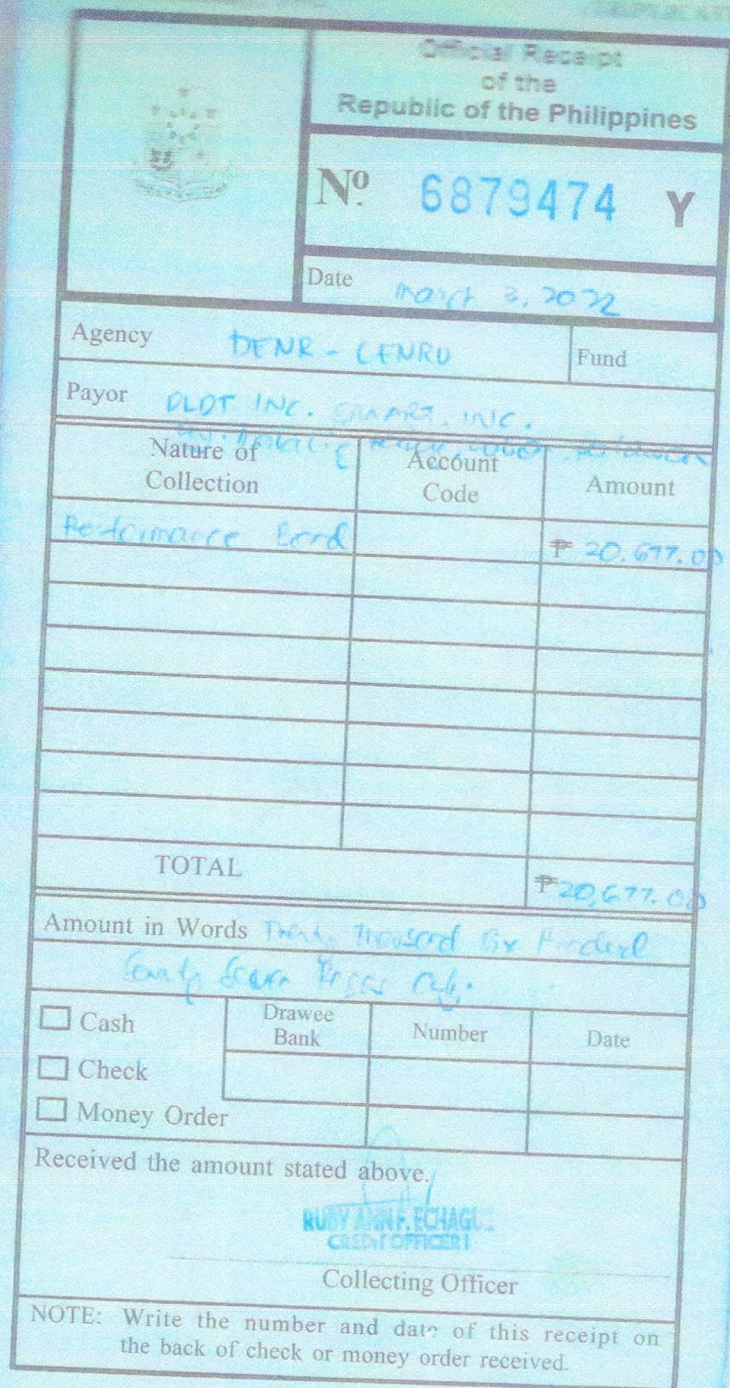 DUPLICATE
Official Receipt
of the
Republic of the Philippines
Nº. 6879474 Y
Date March 3, 2022
Agency DENR - CENRO
Fund
Payor PLDT INC. SMART. INC.
Nature of Collection
Account Code
Amount
Performance Bond ₱ 20.677.00
TOTAL ₱20,677.00
Amount in Words Twenty Thousand Six Hundred
Seventy Seven Pesos Only.
Cash
Drawee Bank
Number
Date
Check
Money Order
Received the amount stated above.
RUBY ANN F. ECHAGUE
CREDIT OFFICER I
Collecting Officer
NOTE: Write the number and date of this receipt on
the back of check or money order received.